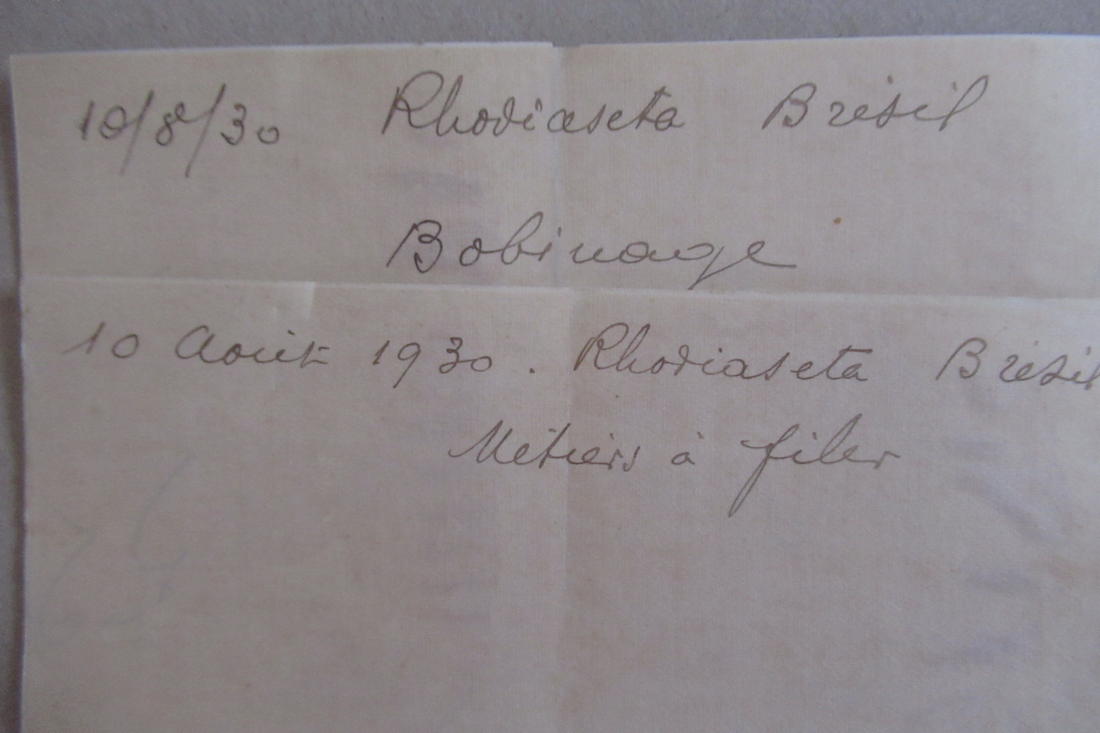 10/8/30 Rhodiaseta Brésil
Bobinage
10 Août 1930. Rhodiaseta Brésil
Métiers à filer